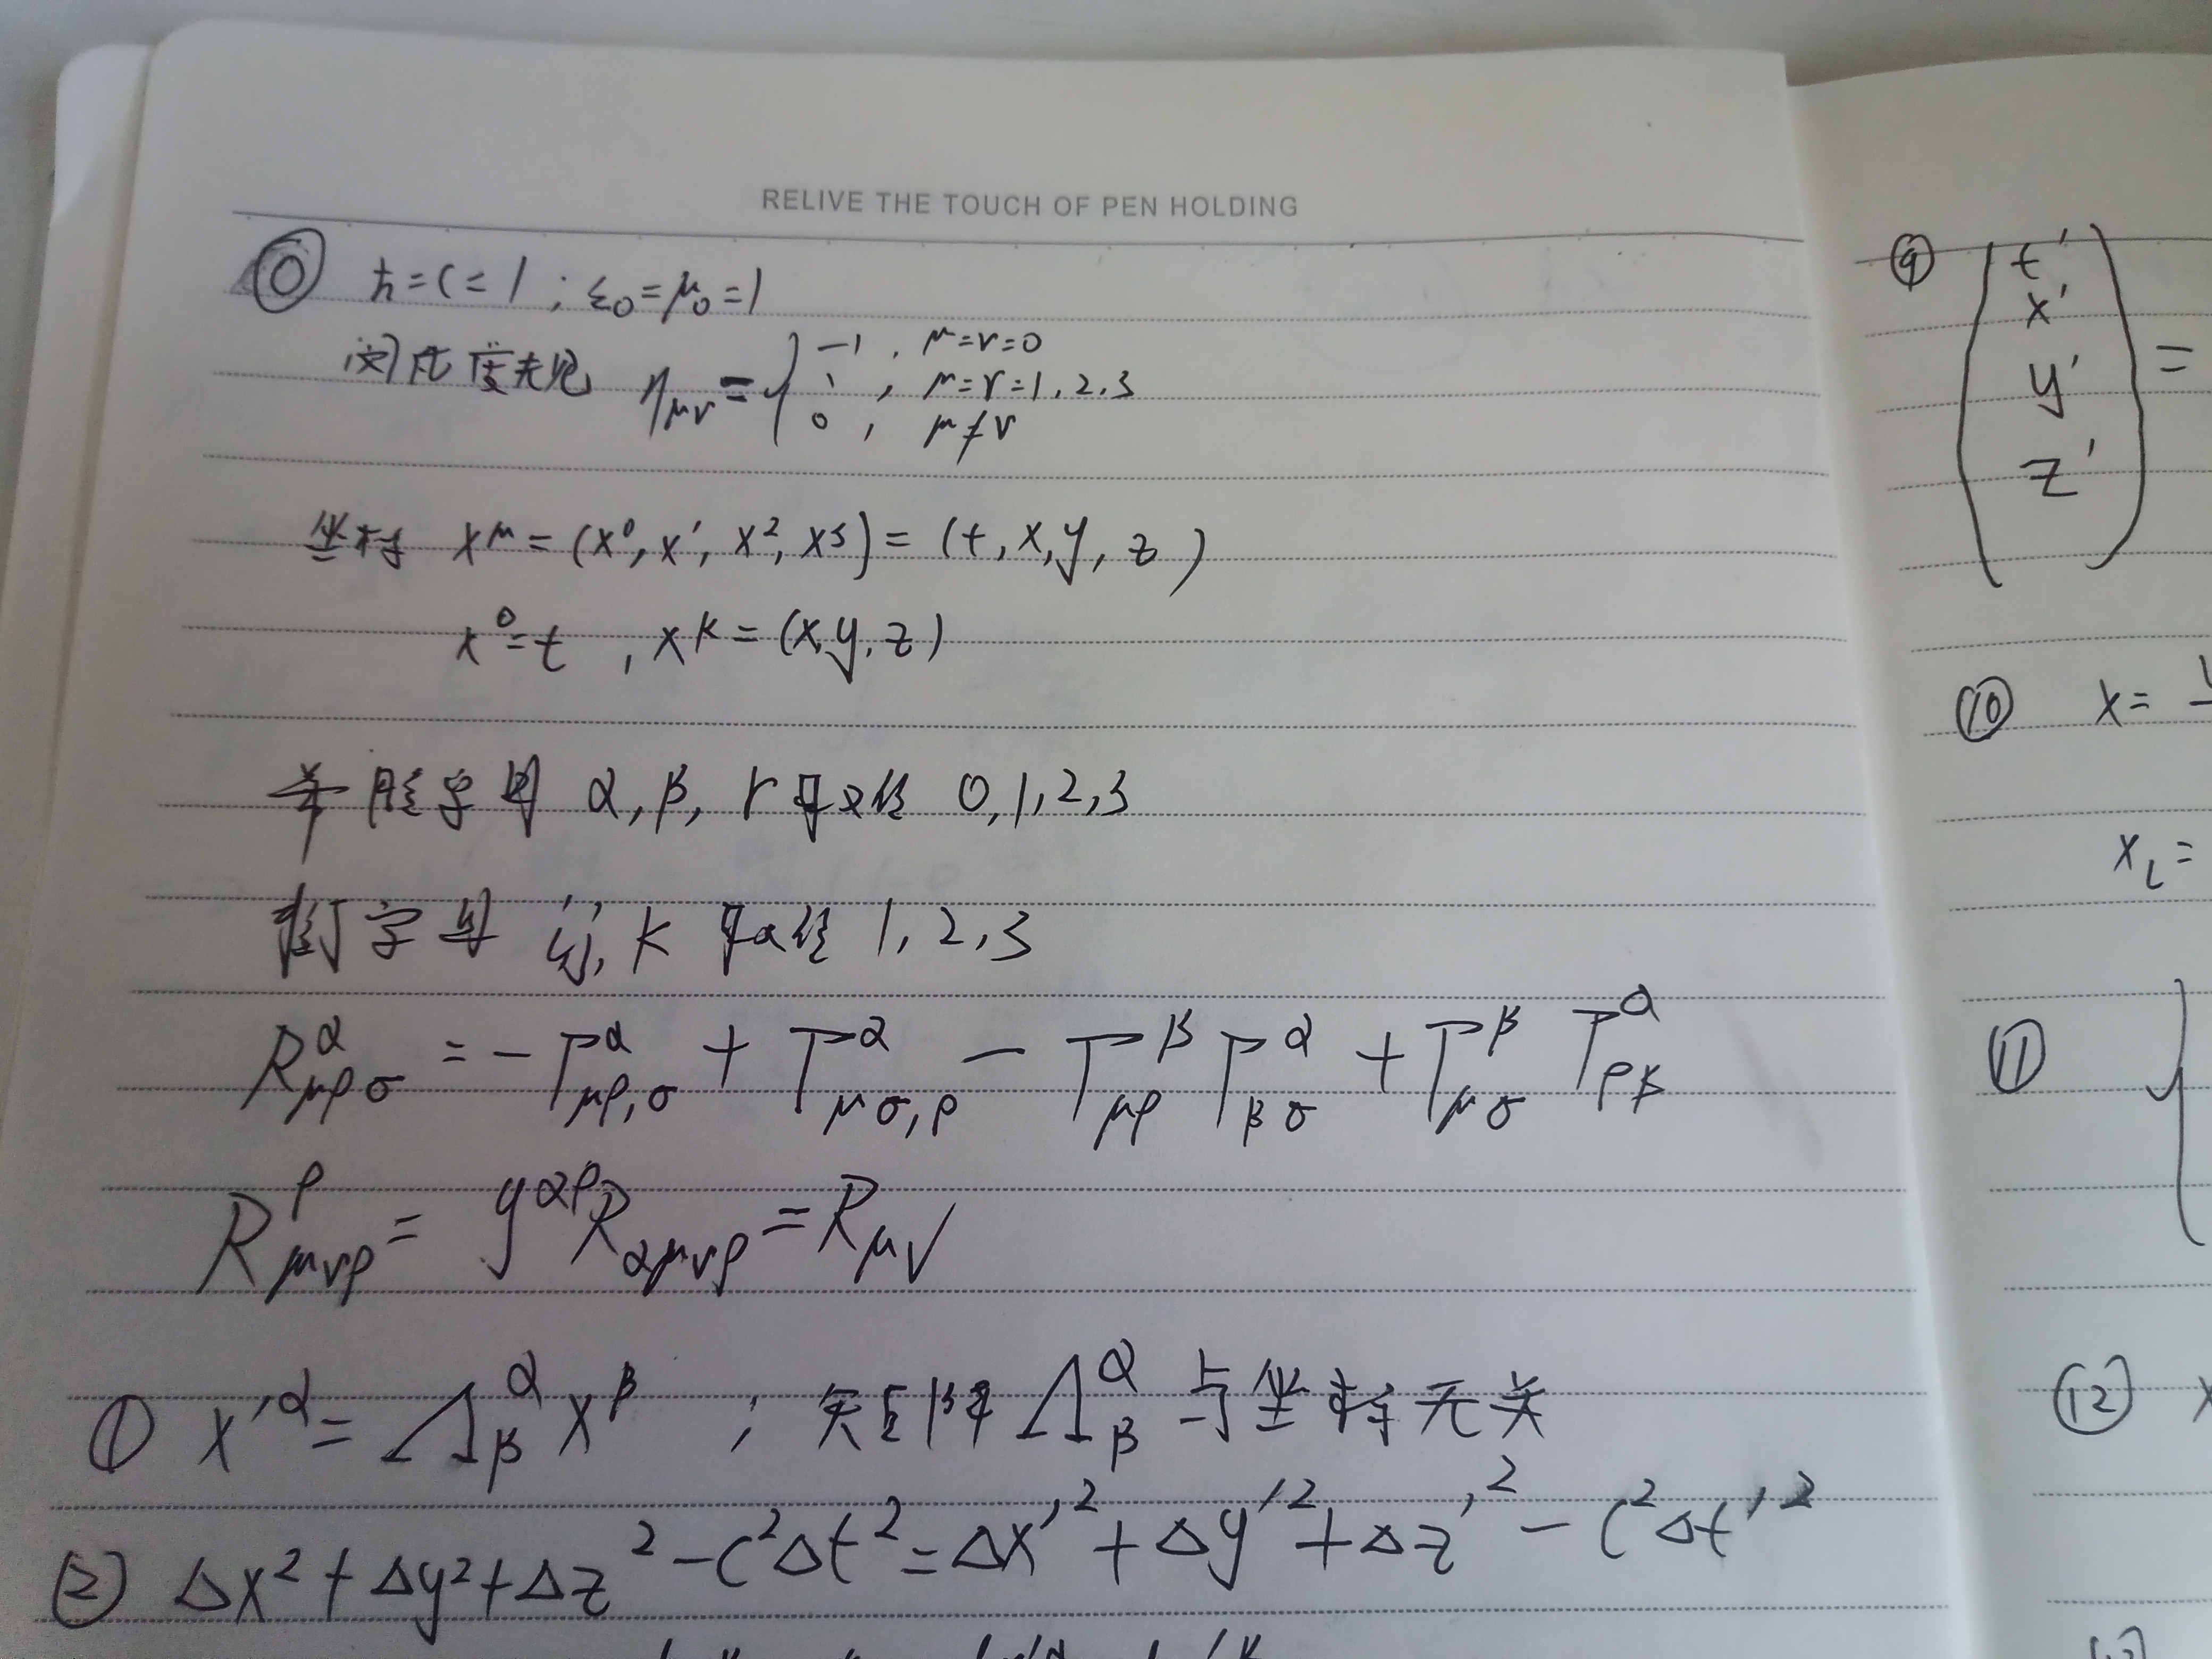 RELIVE THE TOUCH OF PEN HOLDING
⓪ ħ=c=1 ; ε₀=μ₀=1
闵氏度规 η_μν = { -1 , μ=ν=0
1 , μ=ν=1,2,3
0 , μ≠ν
坐标 x^μ = (x⁰, x¹, x², x³) = (t, x, y, z)
x⁰=t , x^k = (x,y,z)
希腊字母 α, β, γ 取值 0,1,2,3
拉丁字母 i,j,k 取值 1,2,3
R^α_μρσ = -Γ^α_μρ,σ + Γ^α_μσ,ρ - Γ^β_μρ Γ^α_βσ + Γ^β_μσ Γ^α_ρβ
R^ρ_μνρ = g^αρ R_αμνρ = R_μν
① x'^α = Λ^α_β x^β ; 矩阵 Λ^α_β 与坐标无关
② Δx²+Δy²+Δz²-c²Δt²=Δx'²+Δy'²+Δz'²-c²Δt'²
⑨ ( t'
x'
y' =
z' )
⑩ x=
x_i =
⑪ {
⑫ x